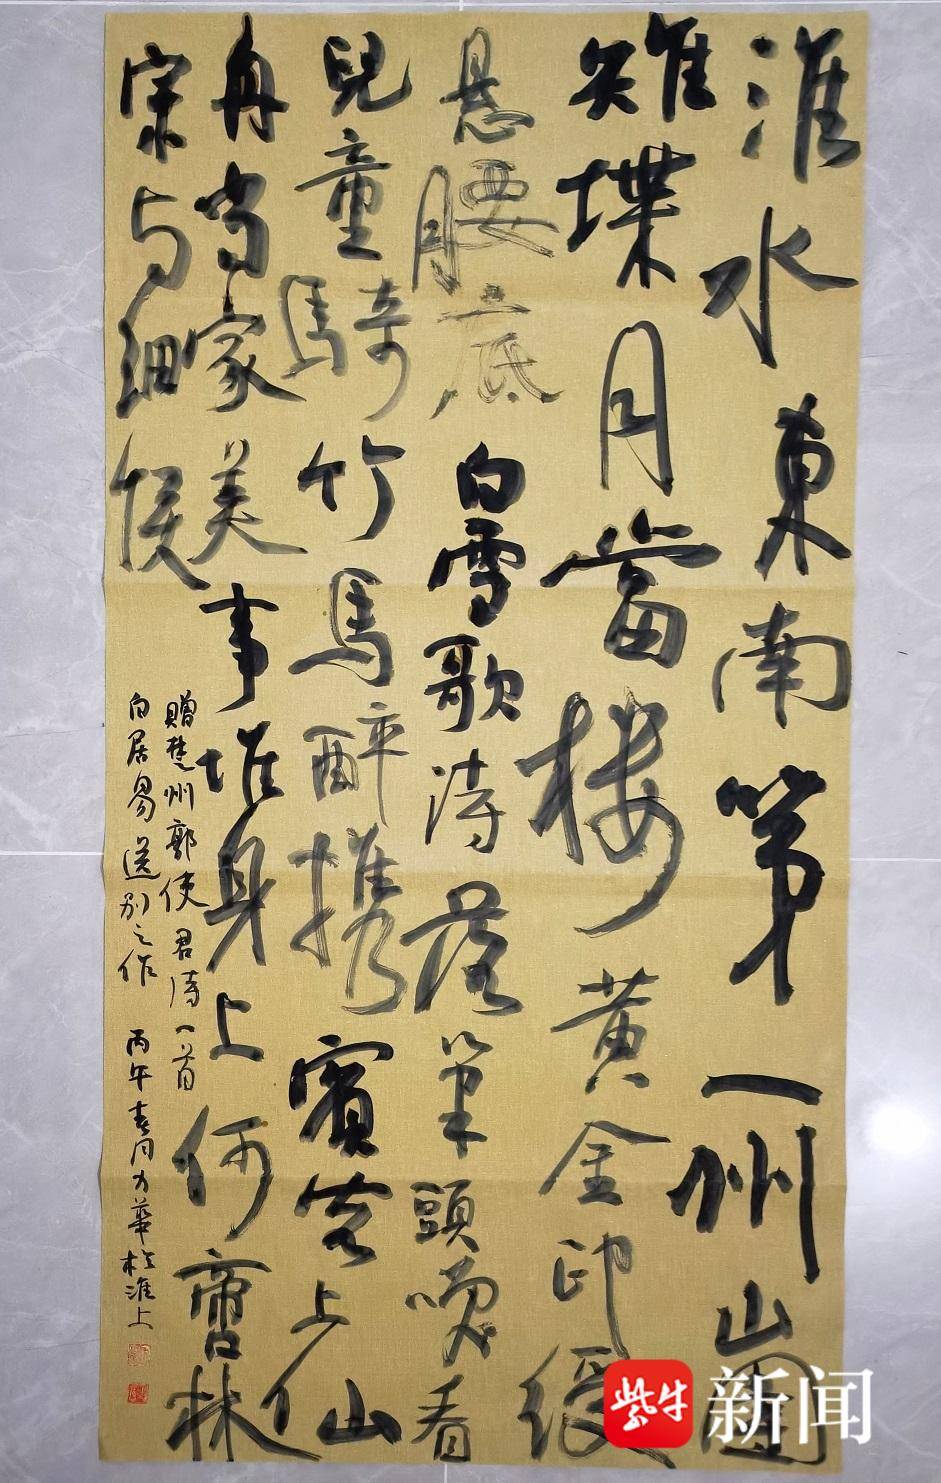 淮水東南第一州山圍
雉堞月當樓黄金印綬
悬腰底白雪歌詩落筆頭咲看
兒童騎竹馬醉携賓客上仙
舟当家美事堆身上何啻林
宗与細侯
贈楚州郭使君詩一首
白居易送别之作 丙午春月華於淮上
紫牛新闻